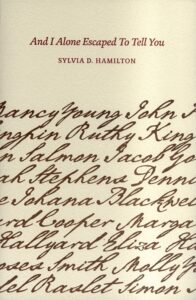 And I Alone Escaped To Tell You
SYLVIA D. HAMILTON
Nancy Young John
Ruthy King
n Salmon Jacob Go
ak Stephens Denni
e Johana Blackwel
rd Cooper Marga
Hallyard Eliza Ha
oses Smith Molly
el Raslet Simon